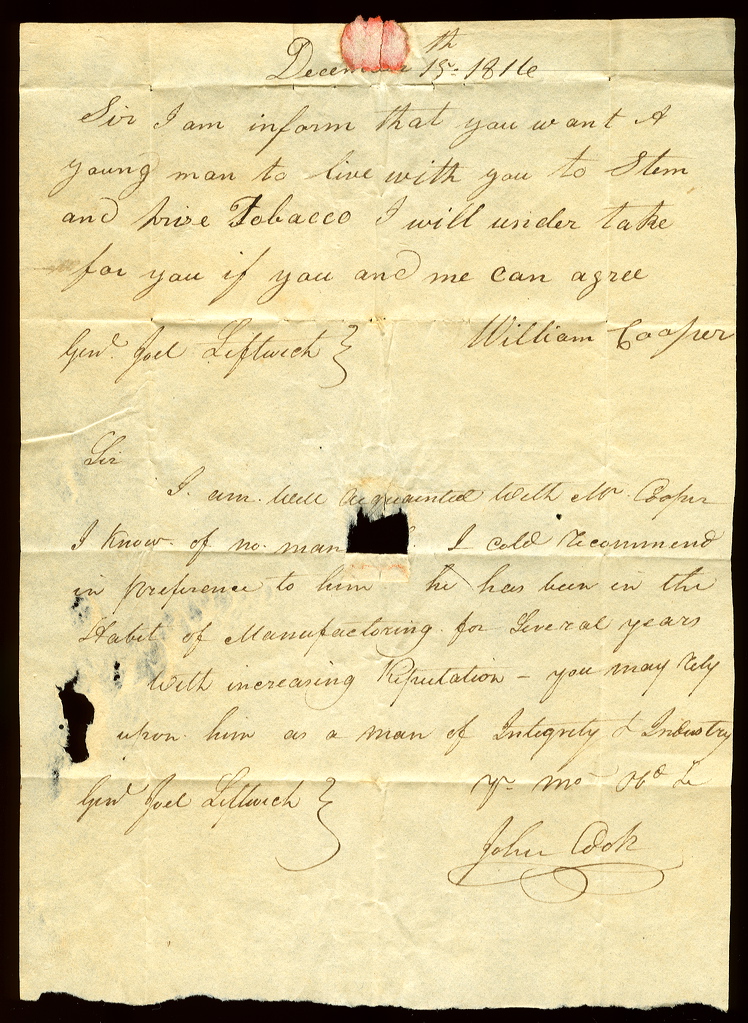 December 15th 1816
Sir I am inform that you want A
young man to live with you to Stem
and prise Tobacco I will under take
for you if you and me can agree
William Cooper
Genl. Joel Leftwich
Sir
I. am. well acquainted with Mr. Cooper
I know. of no. man I cold recommend
in preference to him he has been in the
Habit of Manufactoring for Several years
With increasing Reputation – you may rely
upon him as a man of Integrity & Industry
Yr mo Obd Se
Genl Joel Leftwich
John Cook